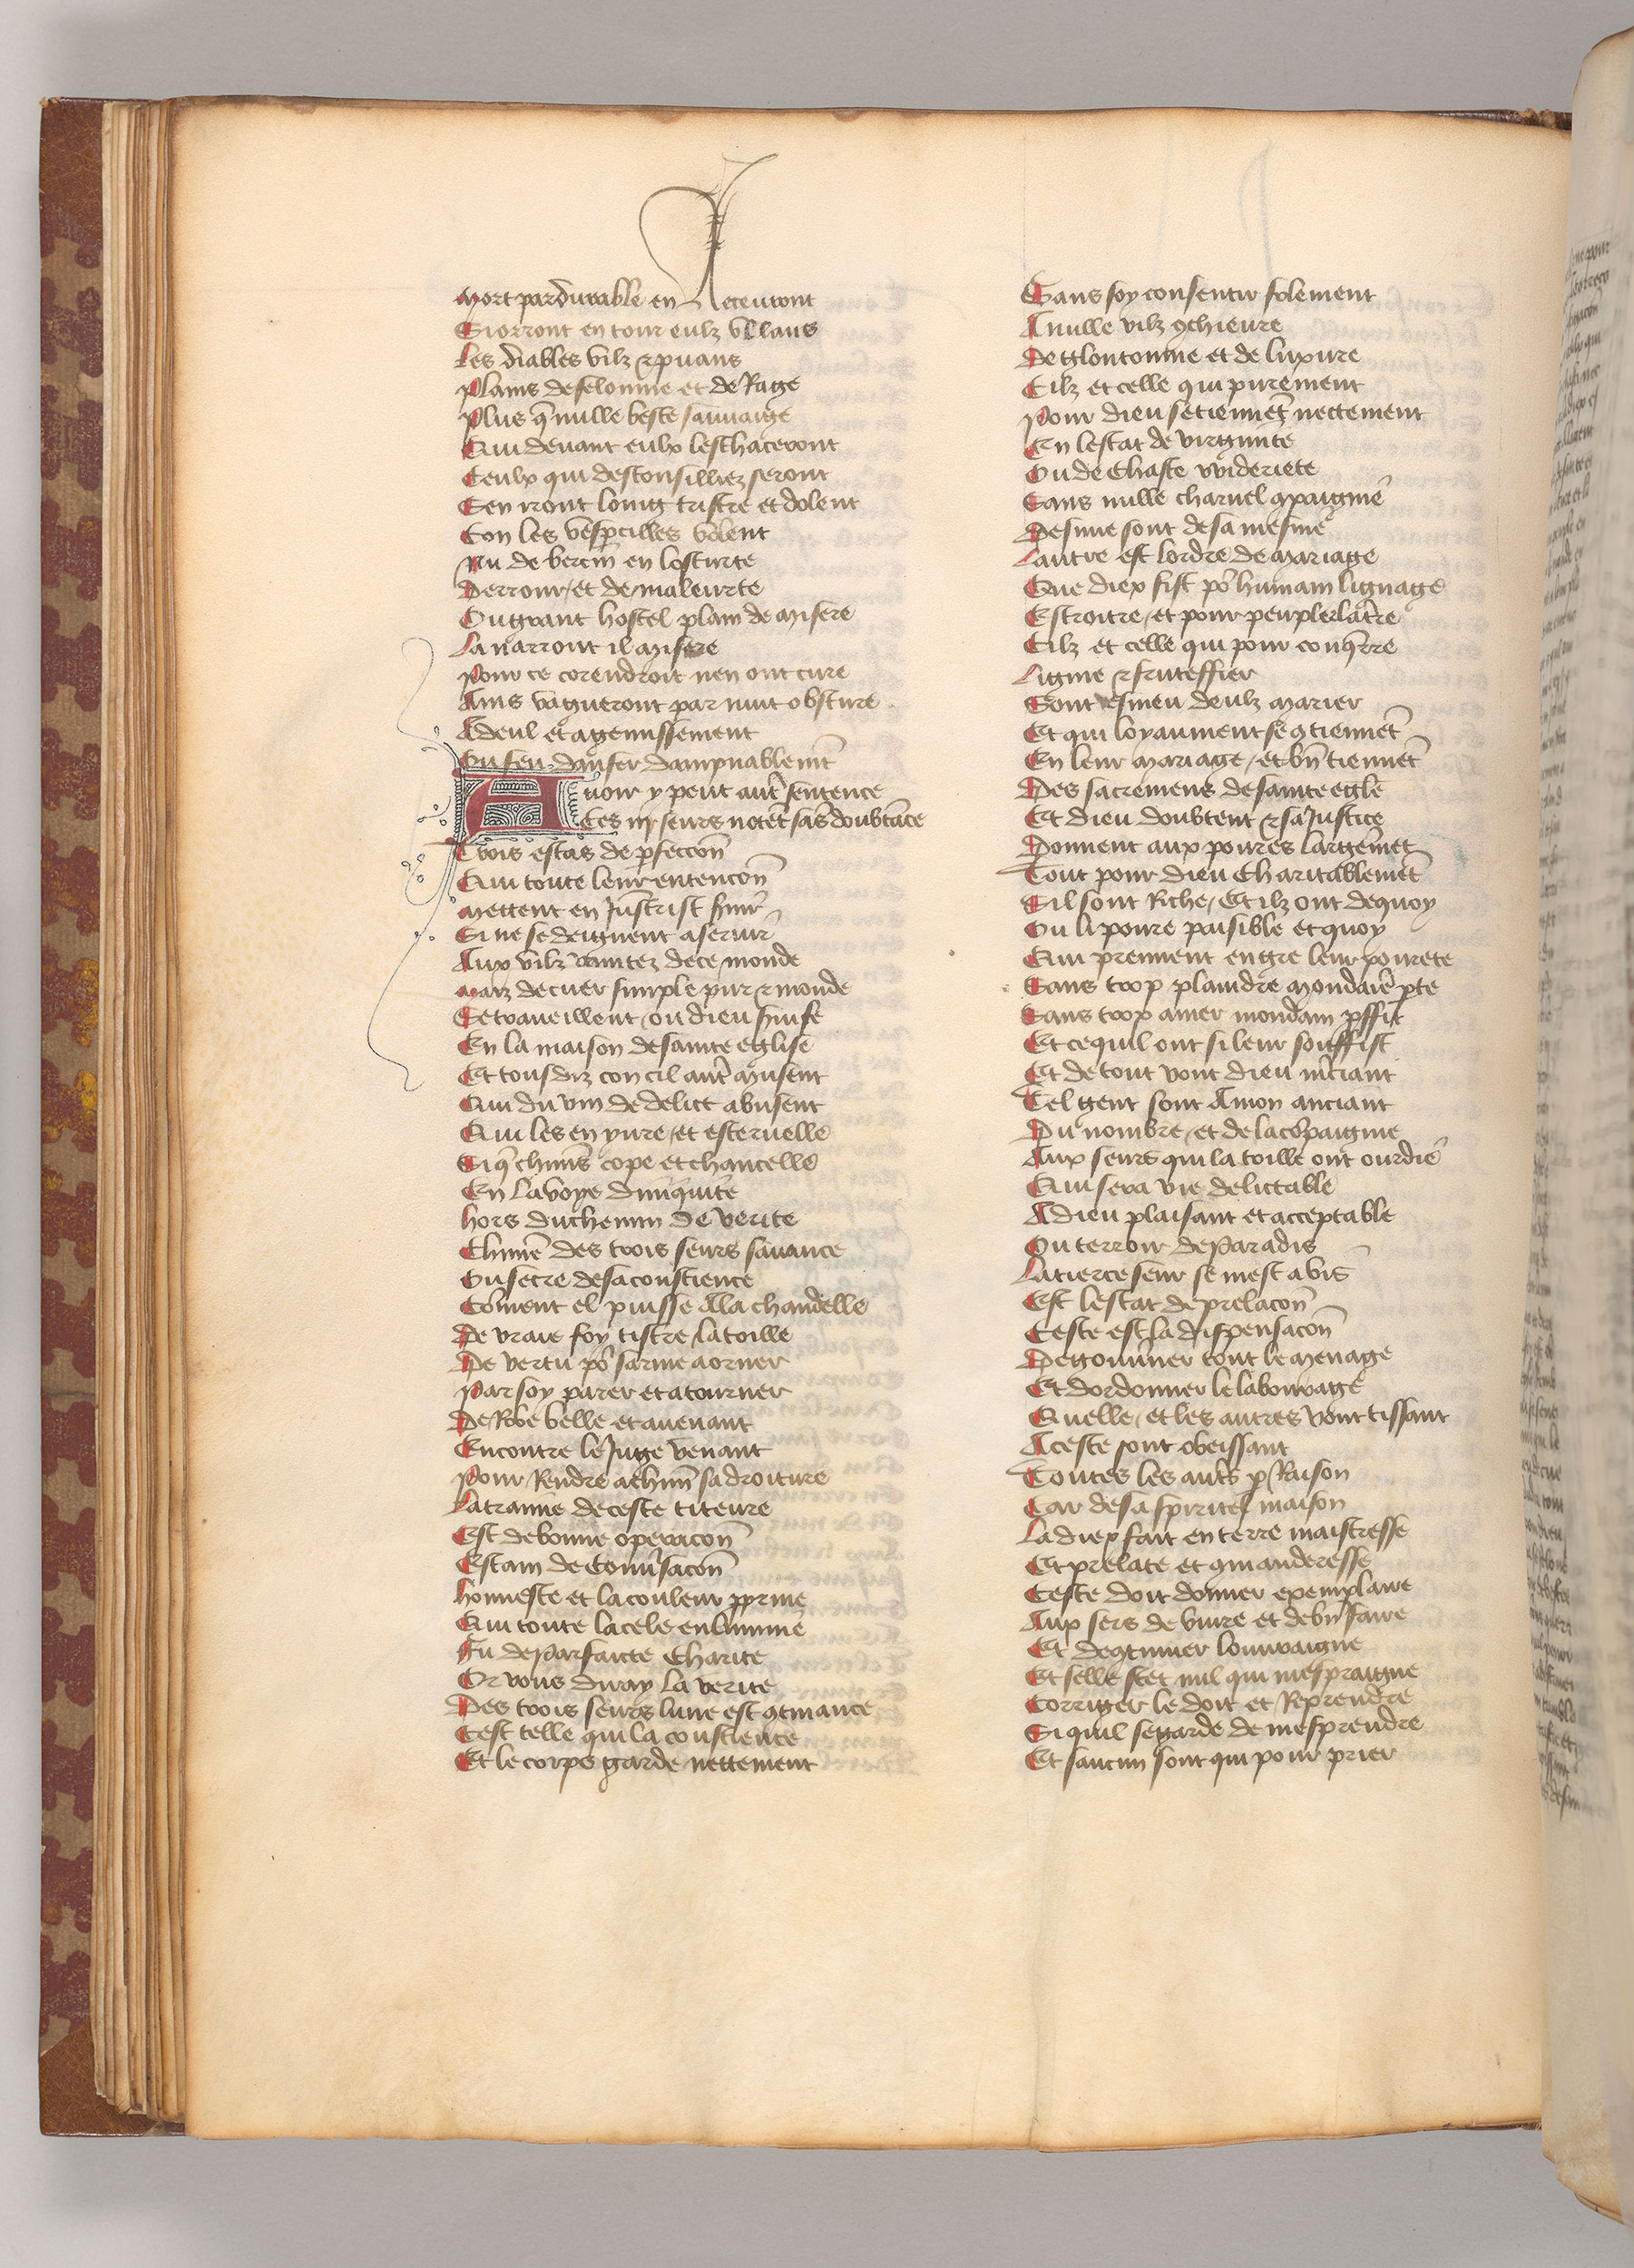 Mort pardurable en Receuront
Si orront entour eulz vllans
Les diables vilz ⁊ puans
Plains de felonnie et de Rage
Plus q̄ nulle beste sauuaige
Qui deuant eulx les chaceront
Ceulx qui desconsilliez seront
Sen iront loing tristre et dolent
Con les vespertilles volent
Ou de verain en loscurte
Derrour / et de maleurte
Ou grant hostel plain de Misere
La narront il Misere
Pour ce corendroit nen ont cure
Ains vagueront par nuit obscure
A deul et a gemissement
Ou feu danfer dampnablemt̄
Auoir y peut aut̄ sentence
Ces iij seurs notēt sās doubtāce
Trois estas de ꝑfeccon̄
Qui toute leur entencon̄
Mettent en Jhūcrist seruir
Si ne se deignent aseruir
Aux vilz vanitez de ce monde
Maiz de cuer simple pur ⁊ monde
Se traueillent / ou dieu seruise
En la maison de sainte eglise
Et tousdiz con cil aut̄ Musent
Qui du vin de delict abusent
Qui les en yure / et esceruelle
Si q̄ chūns cope et chancelle
En la voye diniquite
Hors du chemin de verite
Chūne des trois seurs sauance
Ou secre de sa conscience
Cōment el puisse A la chandelle
De vraie foy tistre la toille
De vertu po᷑ sarme aorner
Par soy parer et atourner
De Robe belle et auenant
Encontre le Juge venant
Pour Rendre a chūn sa droiture
La traime de ceste titeure
Est de bonne operacon̄
Estain de conūsacon̄
Honneste et la couleur ꝓprine
Qui toute la cele enlumine
Fu de Parfaicte Charite
Or vous diray la verite
Des trois seurs lune est ꝯtinance
Cest celle qui la conscience
Et le corps garde nettement
Sans soy consentir folement
A nulle vilz ꝯchieure
De gloutonnie et de luxure
Cilz et celle qui purement
Pour dieu se tiennēt nettement
En lestat de virginite
Ou de Chaste vuiderete
Sans nulle charnel ꝯpaignie
De sune sont de sa mesnie
Lautre est lordre de Mariage
Que diex fist po᷑ humain lignage
Estroitre / et pour peupler la t̄re
Cilz et celle qui pour conq̄rre
Lignie ⁊ fruteffier
Sont esmeu deulz Marier
Et qui loyaument se ꝯtiennēt
En leur Mariage / et bn̄ tiennēt
Des sacremens de sainte egl̄e
Et dieu doubtent ⁊ sa Justice
Donnent aux poures largemēt
Tout pour dieu Charitablemēt
Sil sont Riche / Et ilz ont dequoy
Ou li poure paisible et quoy
Qui prennent en gre leur pourete
Sans trop plaindre Mondaiē ꝑte
Sans trop amer mondain ꝓffit
Et ce quil ont si leur souffist
Et de tout vont dieu m̄ciant
Tel gent sont A mon anciant
Du nombre / et de la cōpaignie
Aux seurs qui la toille ont ourdie
Qui sera vie delictable
A dieu plaisant et acceptable
Ou terroir de Paradis
La tierce seur se mest a vis
Est lestat de prelacon̄
Ceste est la dispensacon̄
De gouūner tout le Menage
Et dordonner le labourage
Quelle / et les autres vont tissant
A ceste sont obeissant
Toutes les aut̄s ꝑ Raison
Car de sa spirituel maison
La diex fait en terre maistresse
Et prelate et ꝯmanderesse
Ceste doit donner exemplaire
Aux sers de viure et de bn̄ faire
Et de ꝯtinuer louuraigne
Et selle scet nul qui mespraigne
Corriger le doit et Reprendre
Si quil se garde de mesprendre
Et saucun sont qui pour prier